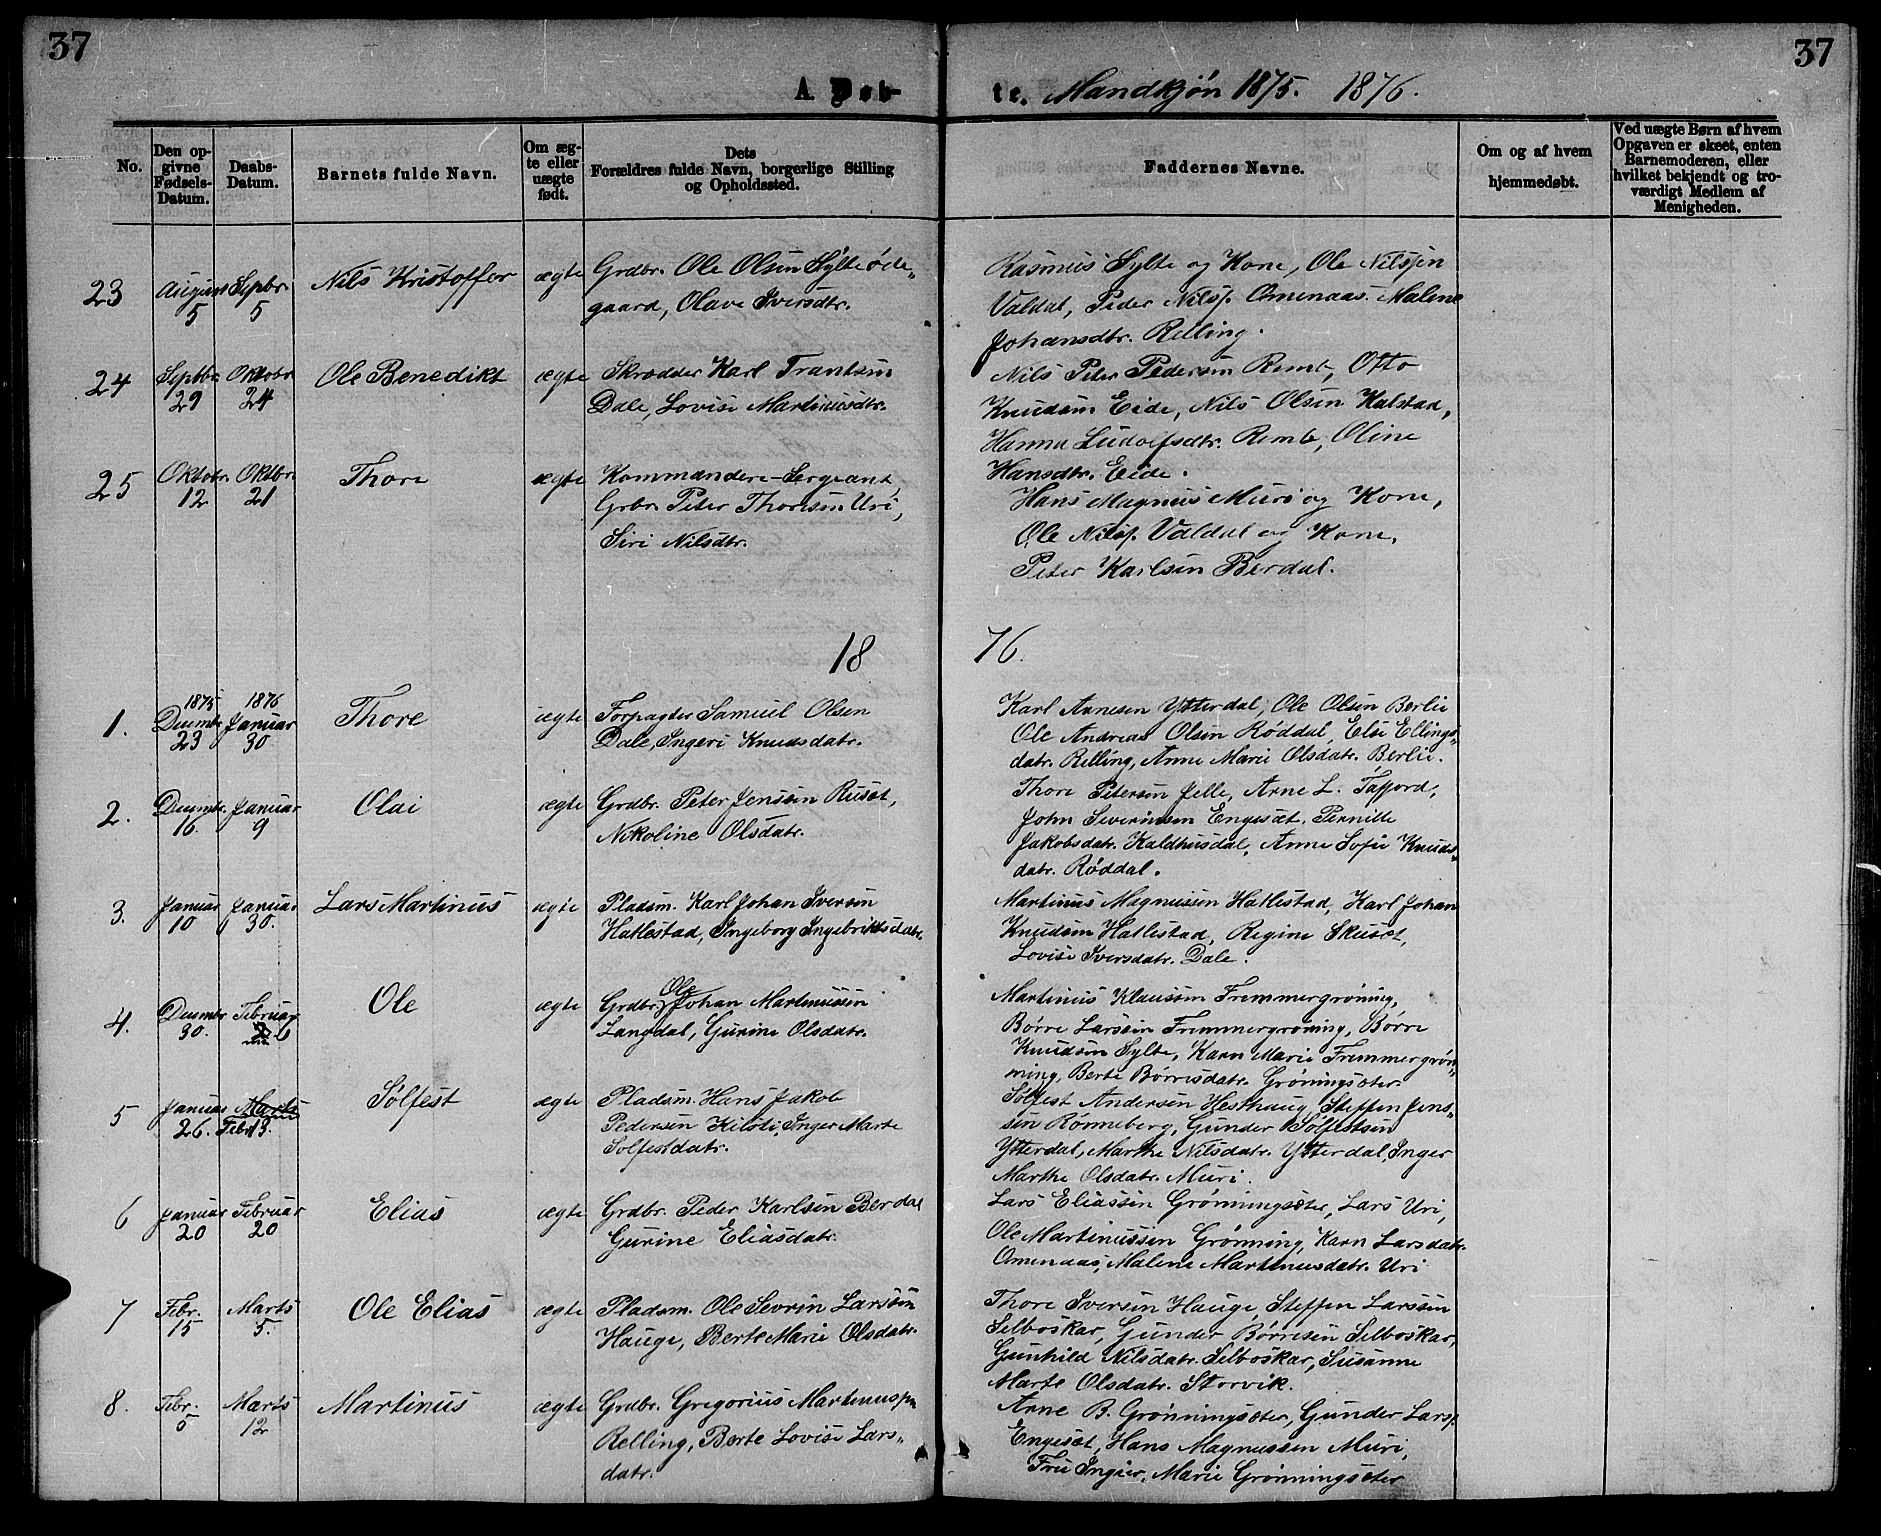 37
37
A. Døb-
te. Mandkjøn 1875. 1876.
No.
Den op-
givne
Fødsels-
Datum.
Daabs-
Datum.
Barnets fulde Navn.
Om æg-
te eller
uægte
født.
Dets
Forældres fulde Navn, borgerlige Stilling
og Opholdssted.
Faddernes Navne.
Om og af hvem
hjemmedøbt.
Ved uægte Børn af hvem
Opgaven er skeet, enten
Barnemoderen, eller
hvilket bekjendt og tro-
værdigt Medlem af
Menigheden.
23
August
5
Septbr.
5
Nils Kristoffer
ægte
Grdbr. Ole Olsen Sylteøde„
gaard, Olave Iversdtr.
Rasmus Sylte og Kone, Ole Nilsen
Valdal, Peder Nilsp. Omenaas. Malene
Johansdtr. Relling.
24
Septbr.
29
Oktobr.
24
Ole Benedikt
ægte
Skrædder Karl Frantsen
Dale, Lovise Martinusdtr.
Nils Peter Pedersen Remb, Otto
Knudsen Eide, Nils Olsen Halstad,
Hanna Ludvifsdtr. Remb, Oline
Hansdtr. Eide.
25
Oktobr.
12
Oktbr.
21
Thore
ægte
Kommandere-Sergeant,
Grbr. Peter Thoresen Uri,
Siri Nilsdtr.
Hans Magnus Muri og Kone,
Ole Nilsp. Valdal og Kone,
Peter Karlsen Berdal.
18
76.
1.
1875
Decembr.
23
1876
Januar
30
Thore
ægte
Forpagter Samuel Olsen
Dale, Ingeri Knudsdatr.
Karl Arnesen Ytterdal, Ole Olsen Berlie
Ole Andreas Olsen Røddal, Else Ellings„
datr. Relling, Anne Marie Olsdatr. Berlie.
2.
Decembr.
16.
Januar
9
Olai
ægte
Grdbr. Peter Jenssen Ruset,
Nikoline Olsdatr.
Thore Petersen Jelle, Arne L. Tafjord,
John Severinsen Engeset, Pernille
Jakobsdatr. Kaldhusdal, Anne Sofie Knuds„
datr. Røddal.
3.
Januar
10
Januar
30.
Lars Martinus
ægte
Pladsm. Karl Johan Iversen
Hatlestad, Ingeborg Ingebriktsdatr.
Martinus Magnussen Hatlestad, Karl Johan
Knudsen Hatlestad, Regine Skuset,
Lovise Iversdatr. Dale.
4.
Decembr.
30.
Februar
6
Ole
ægte
Ole
Grdbr. Johan Martinussen
Langdal, Gurine Olsdatr.
Martinus Klaussen Fremmergrøning,
Børre Larssen Fremmergrøning, Børre
Knudsen Sylte, Karn Marie Fremmergrøn„
ning, Berte Børresdatr. Grøningseter
5
Januar
26.
Marts
Febr. 13.
Sølfest
ægte
Pladsm. Hans Jakob
Pedersen Kilsti, Inger Marte
Solfestdatr.
Sølfest Andersen Hesthaug, Steffen Jens„
sen Rønneberg, Gunder Sølfestsen
Ytterdal, Marthe Nilsdatr. Ytterdal, Inger
Marthe Olsdatr. Muri.
6
Januar
20
Februar
20
Elias
ægte
Grdbr. Peder Karlsen Berdal
Gurine Eliasdatr.
Lars Eliassen Grønningseter, Lars Uri,
Ole Martinussen Grønning, Karn Larsdatr.
Omenaas, Malene Martinusdatr. Uri
7
Febr.
15
Marts
5.
Ole Elias
ægte
Pladsm. Ole Sevrin Larssen
Hauge, Berte Marie Olsdatr.
Thore Iversen Hauge, Steffen Larssen
Selboskar, Gunder Børresen Selboskar,
Gunhild Nilsdatr. Selboskar, Susanne
Marte Olsdatr. Storvik.
8.
Febr.
5
Marts
12
Martinus
ægte
Grdbr. Gregorius Martinuspn
Relling, Berte Lovise Lars„
datr.
Arne B. Grønningseter, Gunder Larsp.
Engeset, Hans Magnussen Muri,
Fru Ingier, Marie Grønningseter